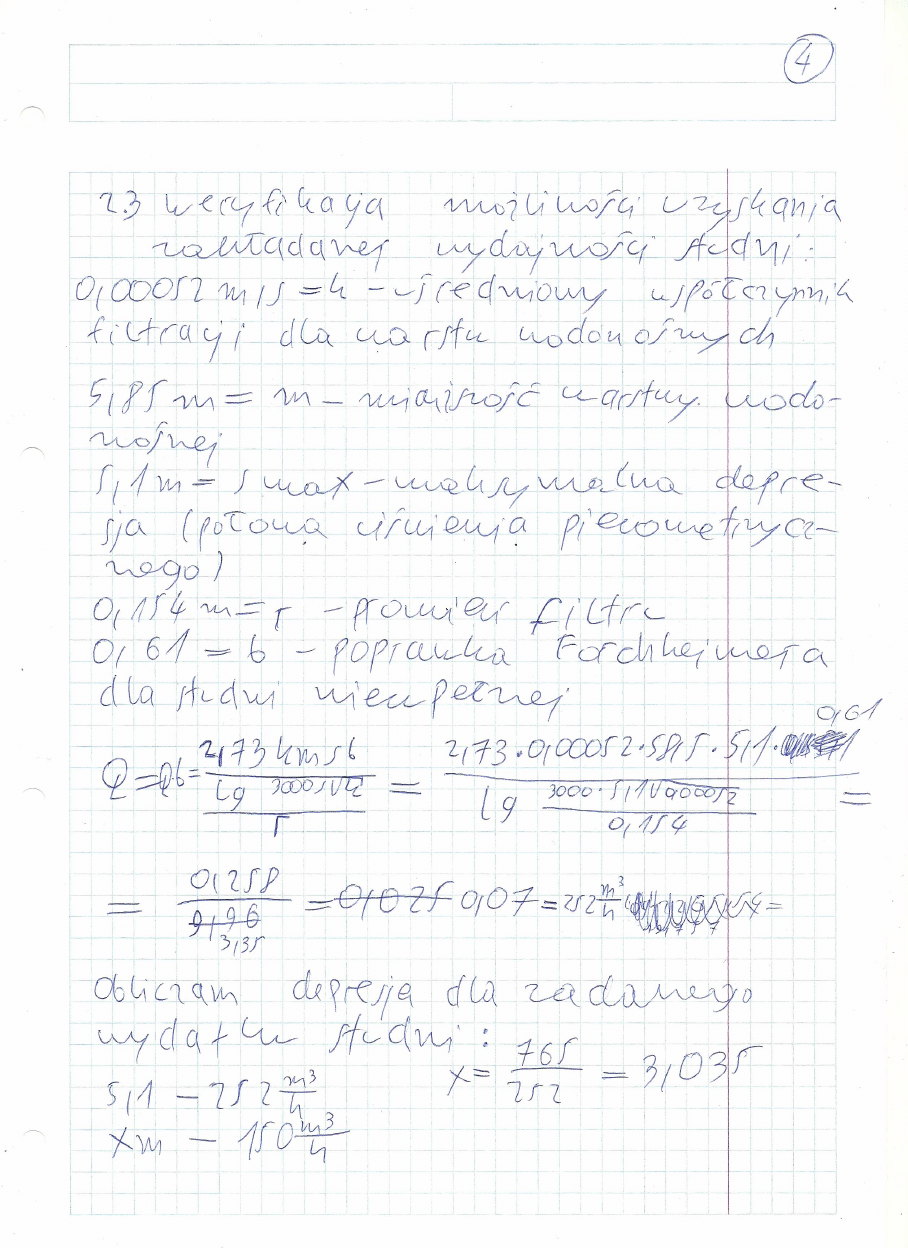 4
2.3 Weryfikacja możliwości uzyskania
zakładanej wydajności studni:
0,00052 m/s = k - uśredniony współczynnik
filtracji dla warstw wodonośnych
5,85 m = m - miąższość warstwy wodo-
nośnej
5,1 m = s max - maksymalna depre-
sja (połowa ciśnienia piezometrycz-
nego)
0,154 m = r - promień filtru
0,61 = b - poprawka Forchheimera
dla studni niezupełnej
0,61
Q = Q·b = 2,73 k m s b / lg 3000 s √k / r = 2,73·0,00052·58,5·5,1· / lg 3000·5,1 √0,00052 / 0,154 =
= 0,258 / 9,96 3,35 = 0,025 0,07 = 252 m³/h =
Obliczam depresja dla zadanego
wydatku studni:
5,1 - 252 m³/h x = 765 / 252 = 3,035
x m - 150 m³/h